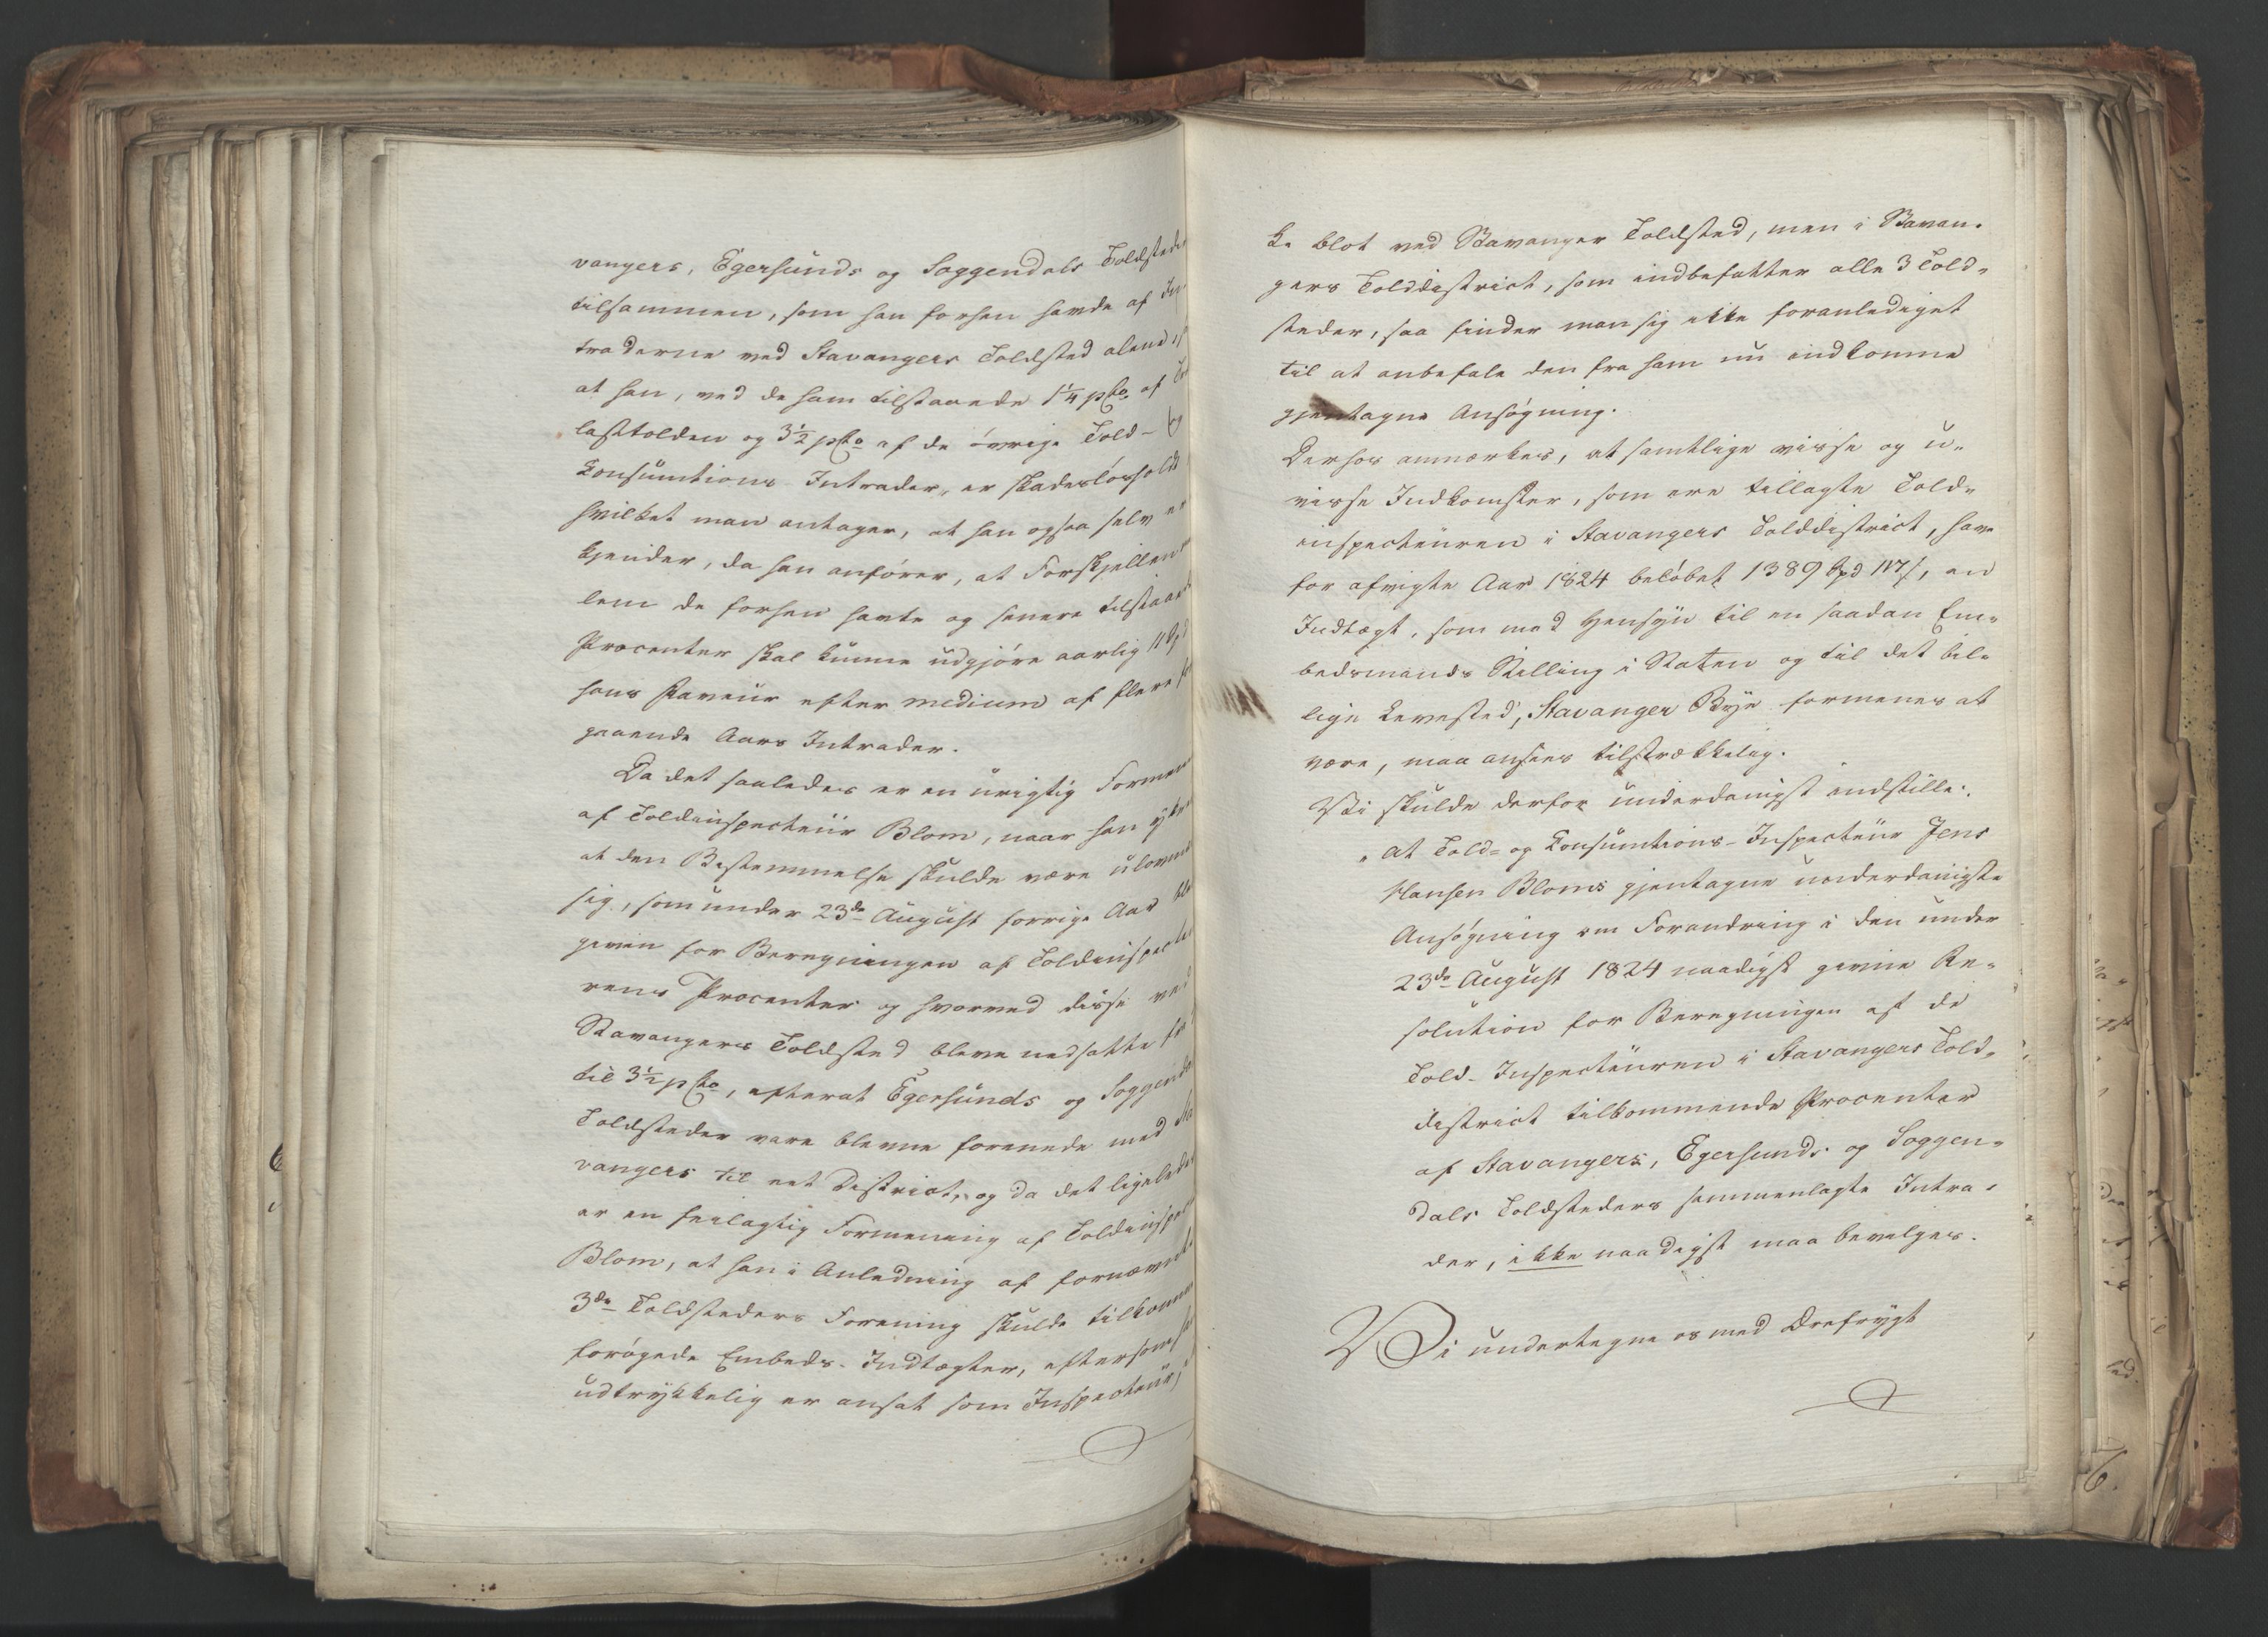 vangers, Egersunds og Soggendals Toldsteder
tilsammen, som han forhen havde af In-
traderne ved Stavangers Toldsted alene,
at han, ved de ham tilstaaede 1¼ pCto. af
lasttolden og 3½ pCto af de övrige Told- og
Consumtions Intrader, er skadeslösholdt
hvilket man antager, at han ogsaa selv er
kjender, da han anförer, at Forskjellen
lem de forhen havte og senere tilstaaede
Procenter skal kunne udgjöre aarlig 11 Spd
hans Faveur efter medium af flere
gaaende Aars Intrader.
Da det saaledes er en urigtig Formening
af Toldinspecteur Blom, naar han yttrer
at den Bestemmelse skulde være ulovme
sig, som under 23de August forrige Aar blev
given for Beregningen af Toldinspecteu
rens Procenter og hvorved disse ved
Stavangers Toldsted bleve nedsatte fra
til 3½ pCto, efterat Egersunds og Soggendals
Toldsteder vare blevne forenede med Sta
vangers til eet District, og da det ligeledes
er en feilagtig Formening af Toldinspecteur
Blom, at han i Anledning af fornævnte
3de Toldsteders Forening skulde tilkomme
forögede Embeds-Indtægter, eftersom han
udtrykkelig er ansat som Inspecteur,
ke blot ved Stavanger Toldsted, men i Stavan-
gers Tolddistrict, som indbefatter alle 3 Told-
steder, saa finder man sig ikke foranlediget
til at anbefale den fra ham nu indkomne
gjentagne Ansögning.
Derhos anmærkes, at samtlige visse og u-
visse Indkomster, som ere tillagte Told-
inspecteuren i Stavangers Tolddistrict, have
for afvigte Aar 1824 belöbet 1389 Spd 117 s, en
Indtægt, som med Hensyn til en saadan Em-
bedsmands Stilling i Staten og til det bil-
lige Levested, Stavanger Bye formenes at
være, maa ansees tilstrækkelig.
Vi skulde derfor underdanigst indstille:
„At Told- og Consumtions-Inspecteur Jens
Hansen Bloms gjentagne underdanigste
Ansögning om Forandring i den under
23de August 1824 naadigst givne Re-
solution for Beregningen af de
Told-Inspecteuren i Stavangers Told-
district tilkommende Procenter
af Stavangers, Egersunds og Soggen-
dals Toldsteders sammenlagte Intra-
der, ikke naadigst maa bevilges.
Vi undertegne os med Ærefrygt